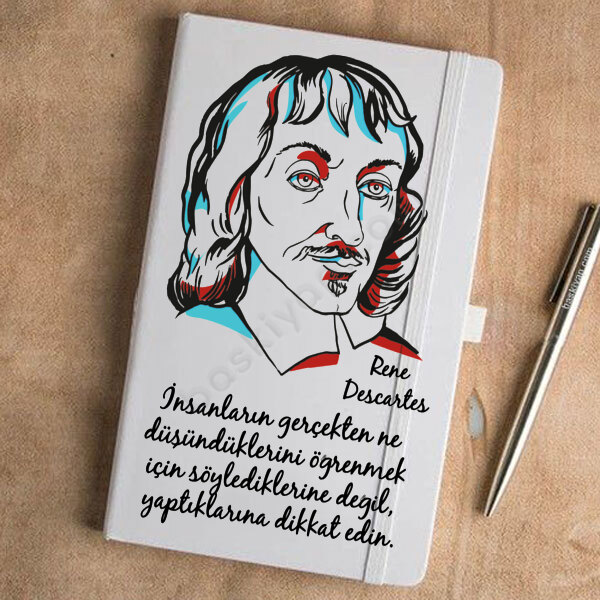 Rene
Descartes
İnsanların gerçekten ne
düşündüklerini öğrenmek
için söylediklerine değil,
yaptıklarına dikkat edin.
baskiyap.com
baskiyap.com